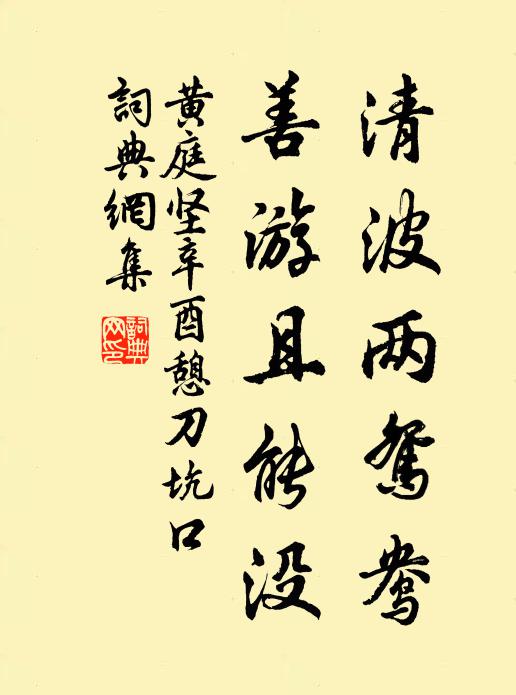 清波两鸳鸯
善游且能没
黄庭坚辛酉憩刀坑口
詞典網集
詞典网印